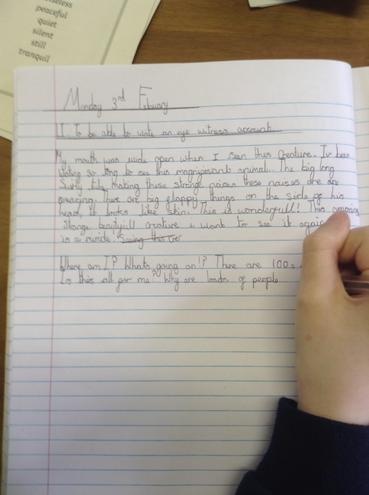 peaceful
quiet
silent
still
tranquil
Monday 3rd Febuary
LI To be able to write an eye witness account
My mouth was wide open when I seen this creature. Iv been
waiting so long to see this magnificent animal. The big long
making these strange noises these noises are so
amazing. There are big flappy things on the side of his
head, it looks like skin. This is wonderfull! This amazing
strange creature i want to see it again
Where am I? Whats going on!? There are 100s
Is this all for me. Why are loads of people